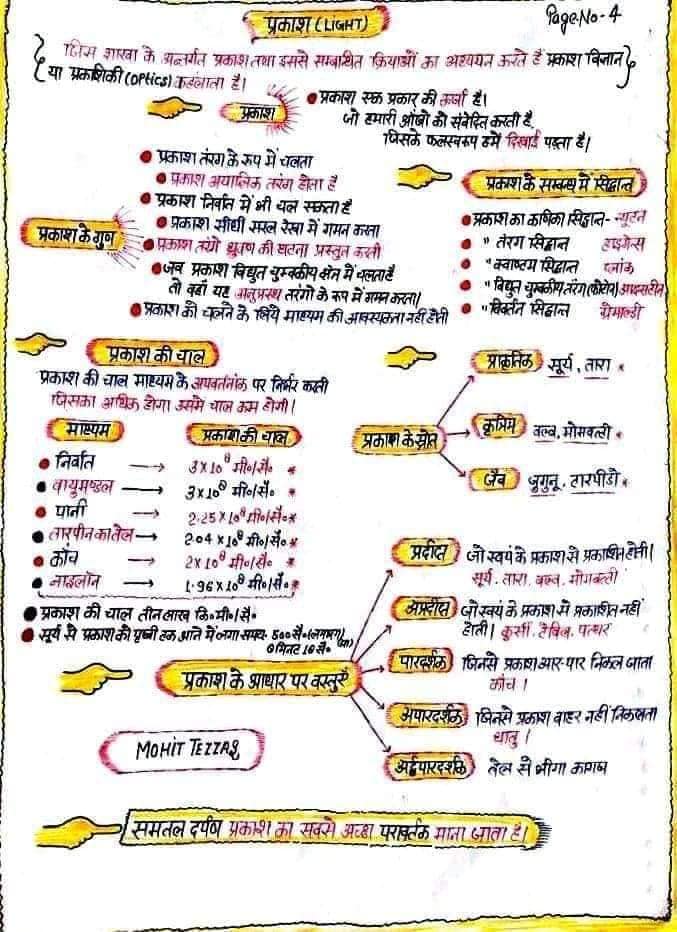 प्रकाश (LIGHT)
Page.No- 4
जिस शाखा के अन्तर्गत प्रकाश तथा इससे सम्बाधित क्रियाओं का अध्ययन करते हैं प्रकाश विज्ञान
या प्रकाशिकी (OPtics) कहलाता है।
प्रकाश
प्रकाश एक प्रकार की ऊर्जा है।
जो हमारी आंखो को संवेदित करती है
जिसके फलस्वरूप हमें दिखाई पड़ता है।
प्रकाश के गुण
प्रकाश तरंग के रूप में चलता
प्रकाश अयान्त्रिक तरंग होता है
प्रकाश निर्वात में भी चल सकता है
प्रकाश सीधी सरल रेखा में गमन करता
प्रकाश तरंगे ध्रुवण की घटना प्रस्तुत करती
जब प्रकाश विद्युत चुम्बकीय क्षेत्र में चलता है
तो वहाँ यह अनुप्रस्थ तरंगो के रूप में गमन करता।
प्रकाश को चलने के लिये माध्यम की आवश्यकता नहीं होती
प्रकाश के सम्बन्ध में सिद्धान्त
प्रकाश का कणिका सिद्धान्त - न्यूटन
" तरंग सिद्धान्त हाइगेन्स
" क्वाण्टम सिद्धान्त प्लांक
" विद्युत चुम्बकीय तरंग (फोटोन) आइन्सटीन
" विवर्तन सिद्धान्त ग्रेमाल्डी
प्रकाश की चाल
प्रकाश की चाल माध्यम के अपवर्तनांक पर निर्भर करती
जिसका अधिक होगा उसमे चाल कम होगी।
माध्यम प्रकाश की चाल
निर्वात → 3×10⁸ मी०/सै० *
वायुमण्डल → 3×10⁸ मी०/सै० *
पानी → 2.25×10⁸ मी०/सै० *
तारपीन का तेल → 2.04×10⁸ मी०/सै० *
काँच → 2×10⁸ मी०/सै० *
नाइलॉन → 1.96×10⁸ मी०/सै० *
प्रकाश की चाल तीन लाख कि०मी०/सै०
सूर्य से प्रकाश को पृथ्वी तक आने में लगा समय- 500 सै० (लगभग)
प्रकाश के स्रोत
प्राकृतिक सूर्य, तारा *
कृत्रिम बल्ब, मोमबत्ती *
जैव जुगुनू, टारपीडो *
प्रकाश के आधार पर वस्तुएँ
प्रदीप्त जो स्वयं के प्रकाश से प्रकाशित होती।
सूर्य, तारा, बल्ब, मोमबत्ती
अप्रदीप्त जो स्वयं के प्रकाश से प्रकाशित नहीं
होती। कुर्सी, टेबिल, पत्थर
पारदर्शक जिनसे प्रकाश आर-पार निकल जाता
काँच।
अपारदर्शक जिनसे प्रकाश बाहर नहीं निकलता
धातु।
अर्द्धपारदर्शक तेल से भीगा कागज
MOHIT TEZZAS
समतल दर्पण प्रकाश का सबसे अच्छा परावर्तक माना जाता है।